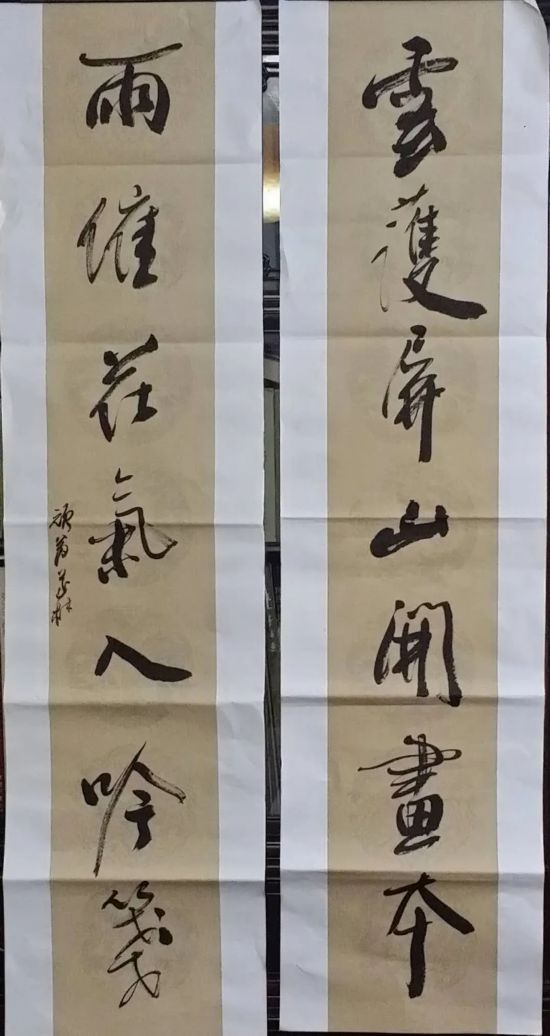 雲護屏山開畫本
雨催花氣入吟箋